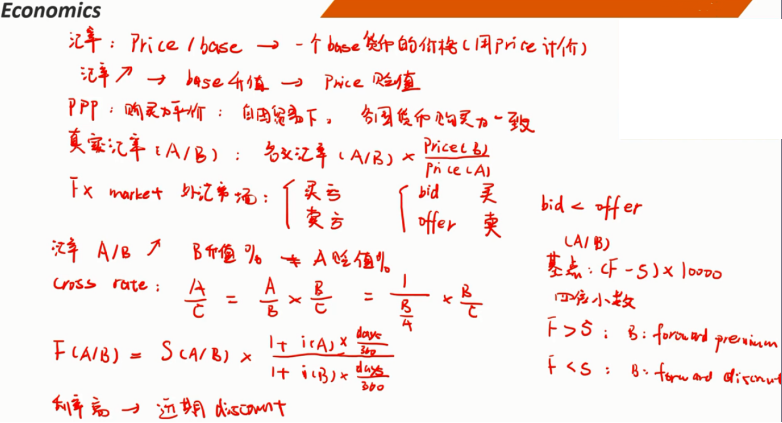 Economics
汇率：Price / base → 一个base货币的价格(用Price计价)
汇率↗ → base升值 → Price贬值
PPP：购买力平价：自由贸易下，各国货币购买力一致
真实汇率(A/B)：名义汇率(A/B) × Price(B)/Price(A)
Fx market 外汇市场：{ 买亏 卖亏 { bid 买 offer 卖
bid < offer
汇率 A/B ↗ B升值% ≠ A贬值%
(A/B)
基点：(F - S) × 10000
四位小数
cross rate：A/C = A/B × B/C = 1/(B/A) × B/C
F > S：B：forward premium
F(A/B) = S(A/B) × (1 + i(A) × days/360)/(1 + i(B) × days/360)
F < S：B：forward discount
利率高 → 远期 discount